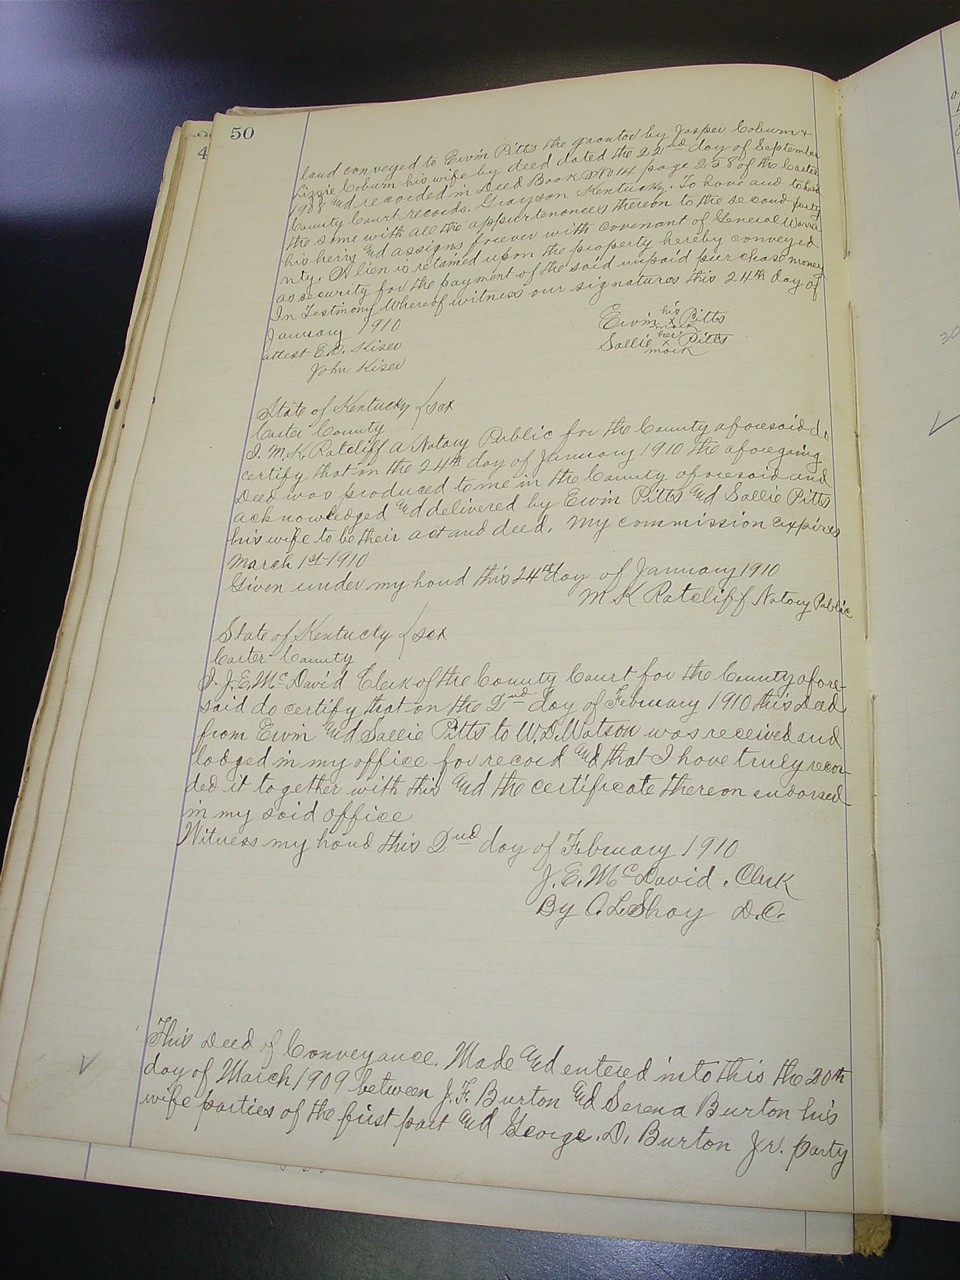 50
4
land conveyed to Erwin Pitts the grantor by Jasper Coburn &
Lizzie Coburn his wife by deed dated the 22nd day of September
1908 and recorded in Deed Book No 14 page 258 of the Carter
County Court records. Grayson Kentucky. To have and to hold
the same with all the appurtenances thereon to the second party
his heirs and assigns forever with covenant of General Warra
nty. A lien is retained upon the property hereby conveyed
as security for the payment of the said unpaid purchase money
In Testimony Whereof witness our signatures this 24th day of
January 1910
Erwin his x mark Pitts
attest E.D. Kiser
Sallie her x mark Pitts
John Kiser
State of Kentucky { sct
Carter County
I. M. K. Ratcliff a Notary Public for the County aforesaid do
certify that on the 24th day of January 1910 the aforegoing
Deed was produced to me in the County aforesaid and
acknowledged and delivered by Erwin Pitts and Sallie Pitts
his wife to be their act and deed. My commission expires
March 1st 1910
Given under my hand this 24th day of January 1910
M K Ratcliff Notary Public
State of Kentucky { sct
Carter County
I. J. E. McDavid Clerk of the County Court for the County afore-
said do certify that on the 2nd day of February 1910 this Deed
from Erwin and Sallie Pitts to W. D. Watson was received and
lodged in my office for record and that I have truly recor-
ded it together with this and the certificate thereon endorsed
in my said office
Witness my hand this 2nd day of February 1910
J. E. McDavid . Clerk
By C. L. Shay D.C.
This Deed of Conveyance. Made and entered into this the 20th
day of March 1909 between J. F. Burton and Serena Burton his
wife parties of the first part and George. D. Burton Jr. party